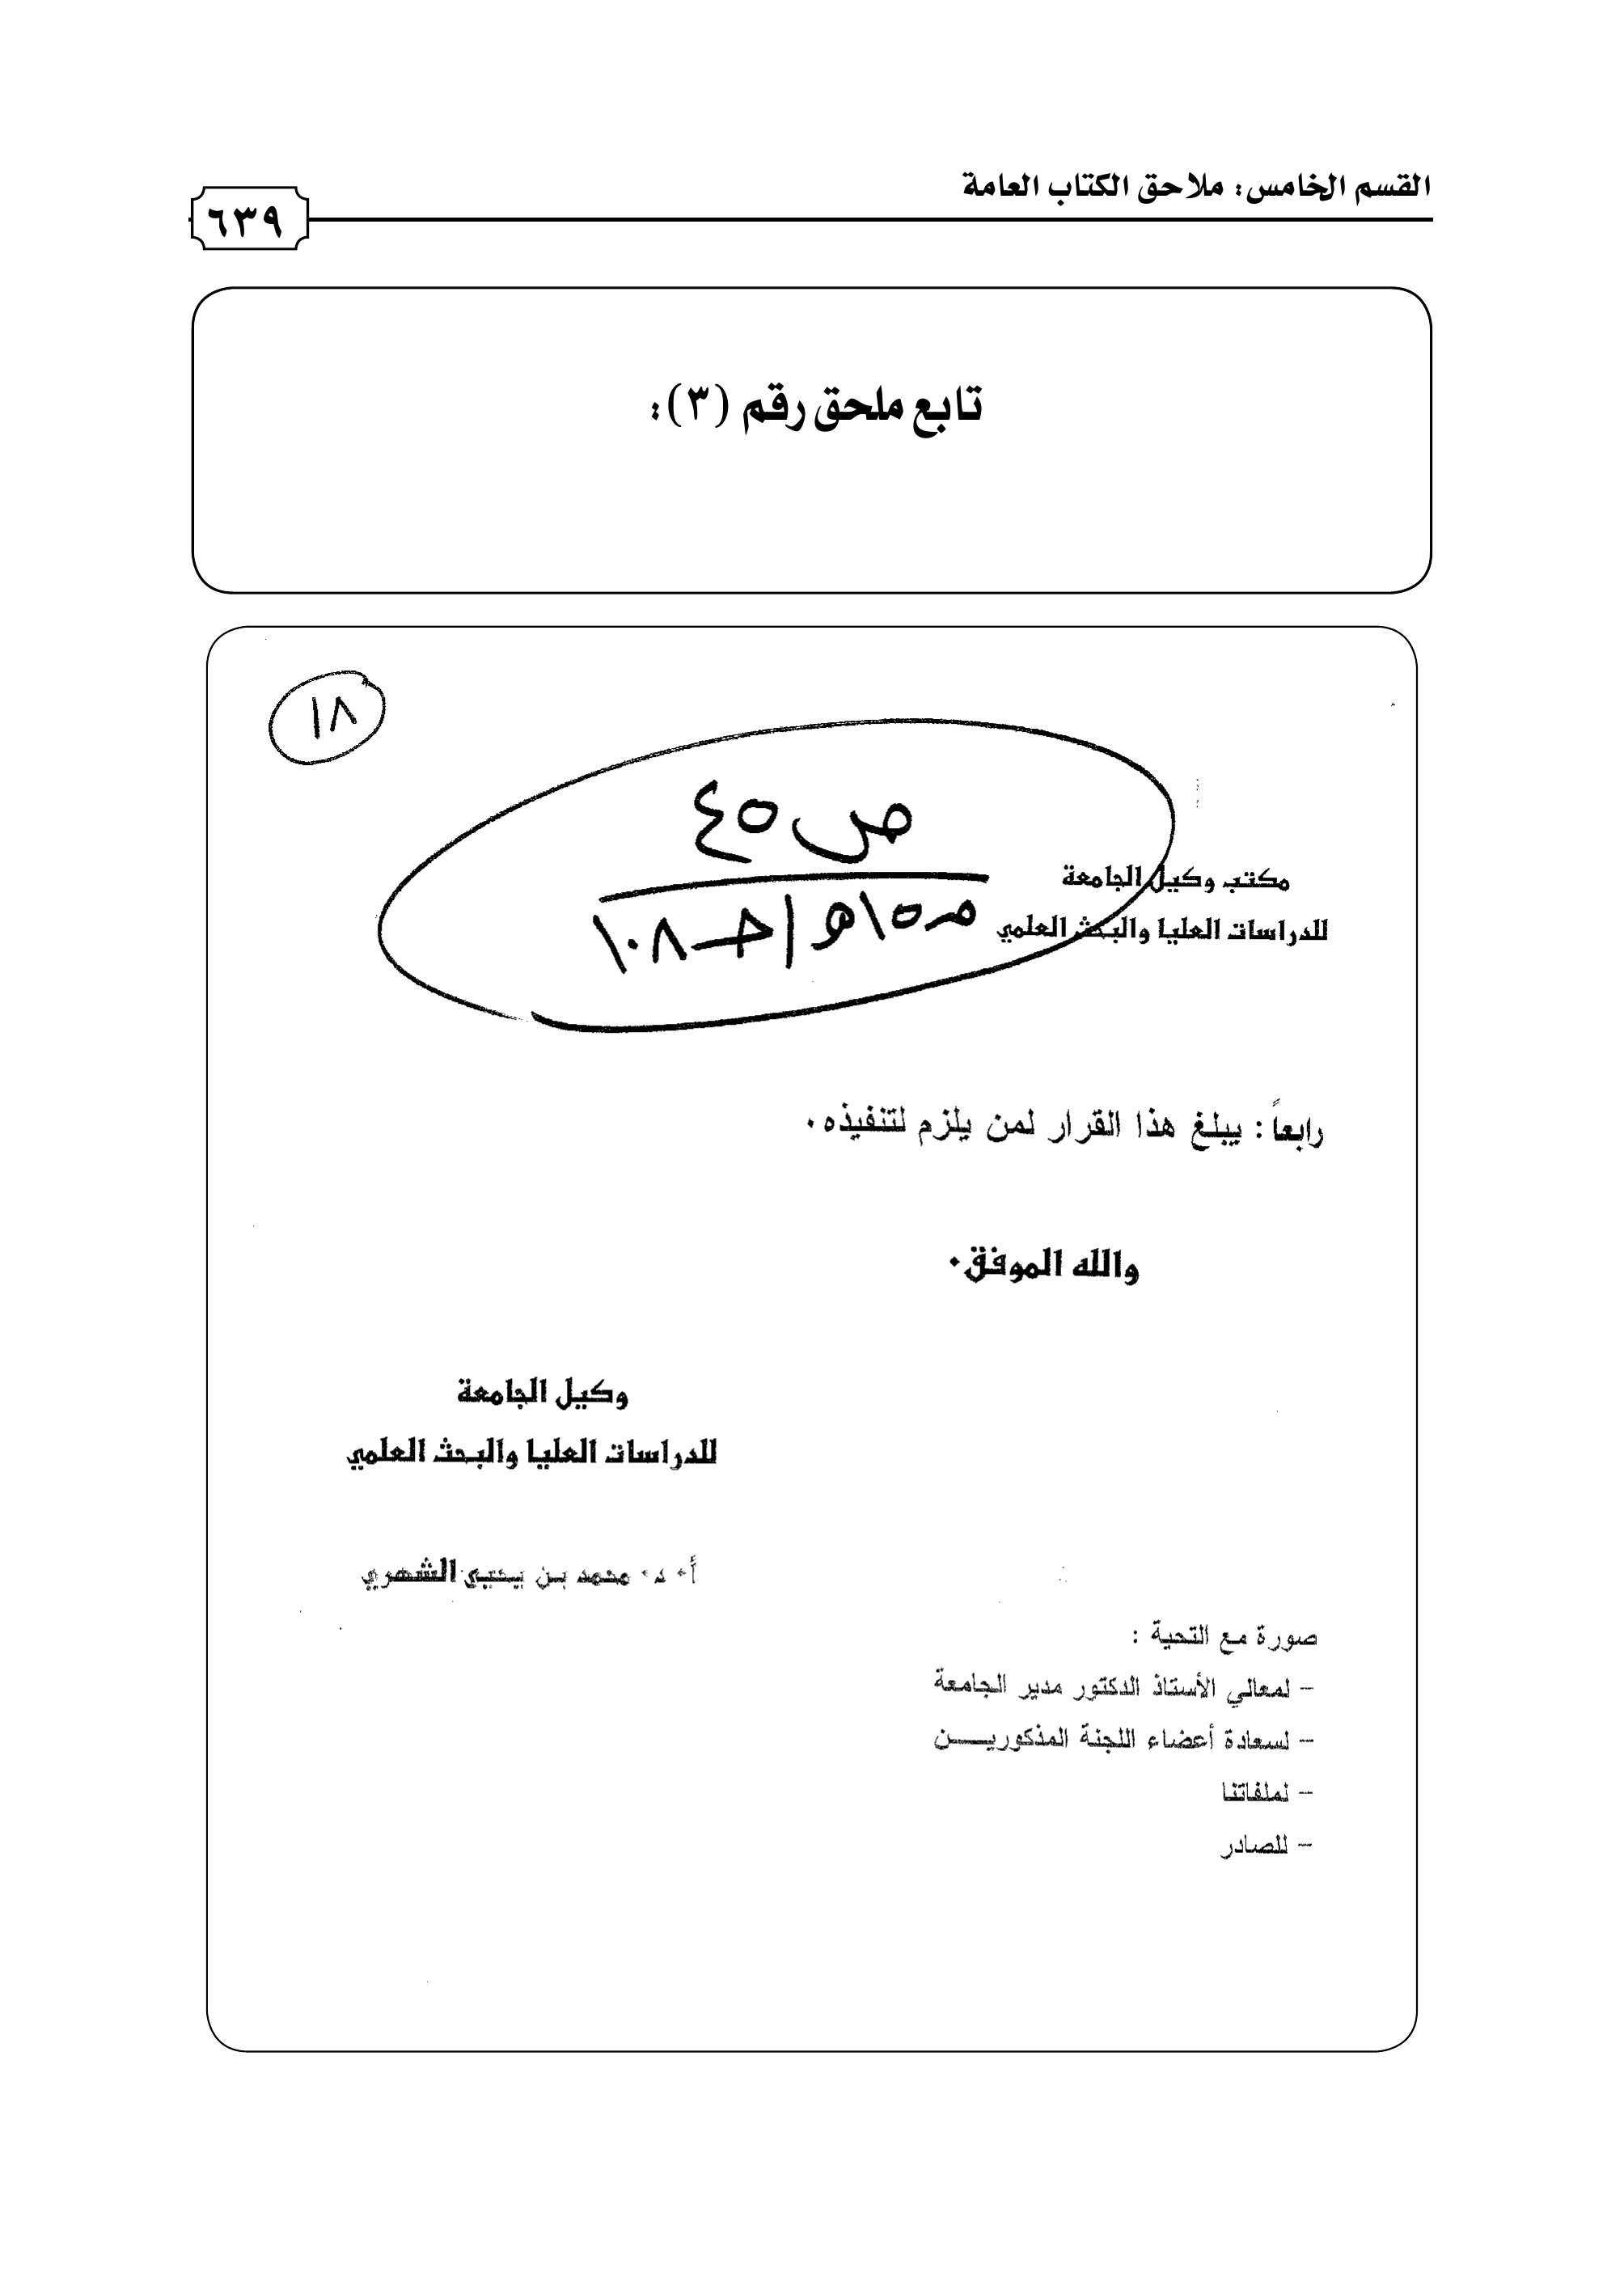 القسم الخامس: ملاحق الكتاب العامة
٦٣٩
تابع ملحق رقم (٣):
١٨
ص ٤٥
مكتب وكيل الجامعة
للدراسات العليا والبحث العلمي
رابعاً: يبلغ هذا القرار لمن يلزم لتنفيذه.
والله الموفق.
وكيل الجامعة
للدراسات العليا والبحث العلمي
أ. د. محمد بن يحيى الشهري
صورة مع التحية :
- لمعالي الأستاذ الدكتور مدير الجامعة
- لسعادة أعضاء اللجنة المذكوريـــن
- لملفاتنا
- للصادر